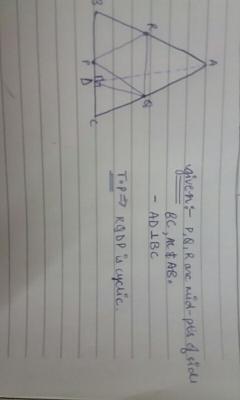 B
R
A
P
D
Q
C
given:- P,Q,R are mid-pts of side
BC, AC & AB.
- AD⊥BC
T.P ⇒ RQDP is cyclic.